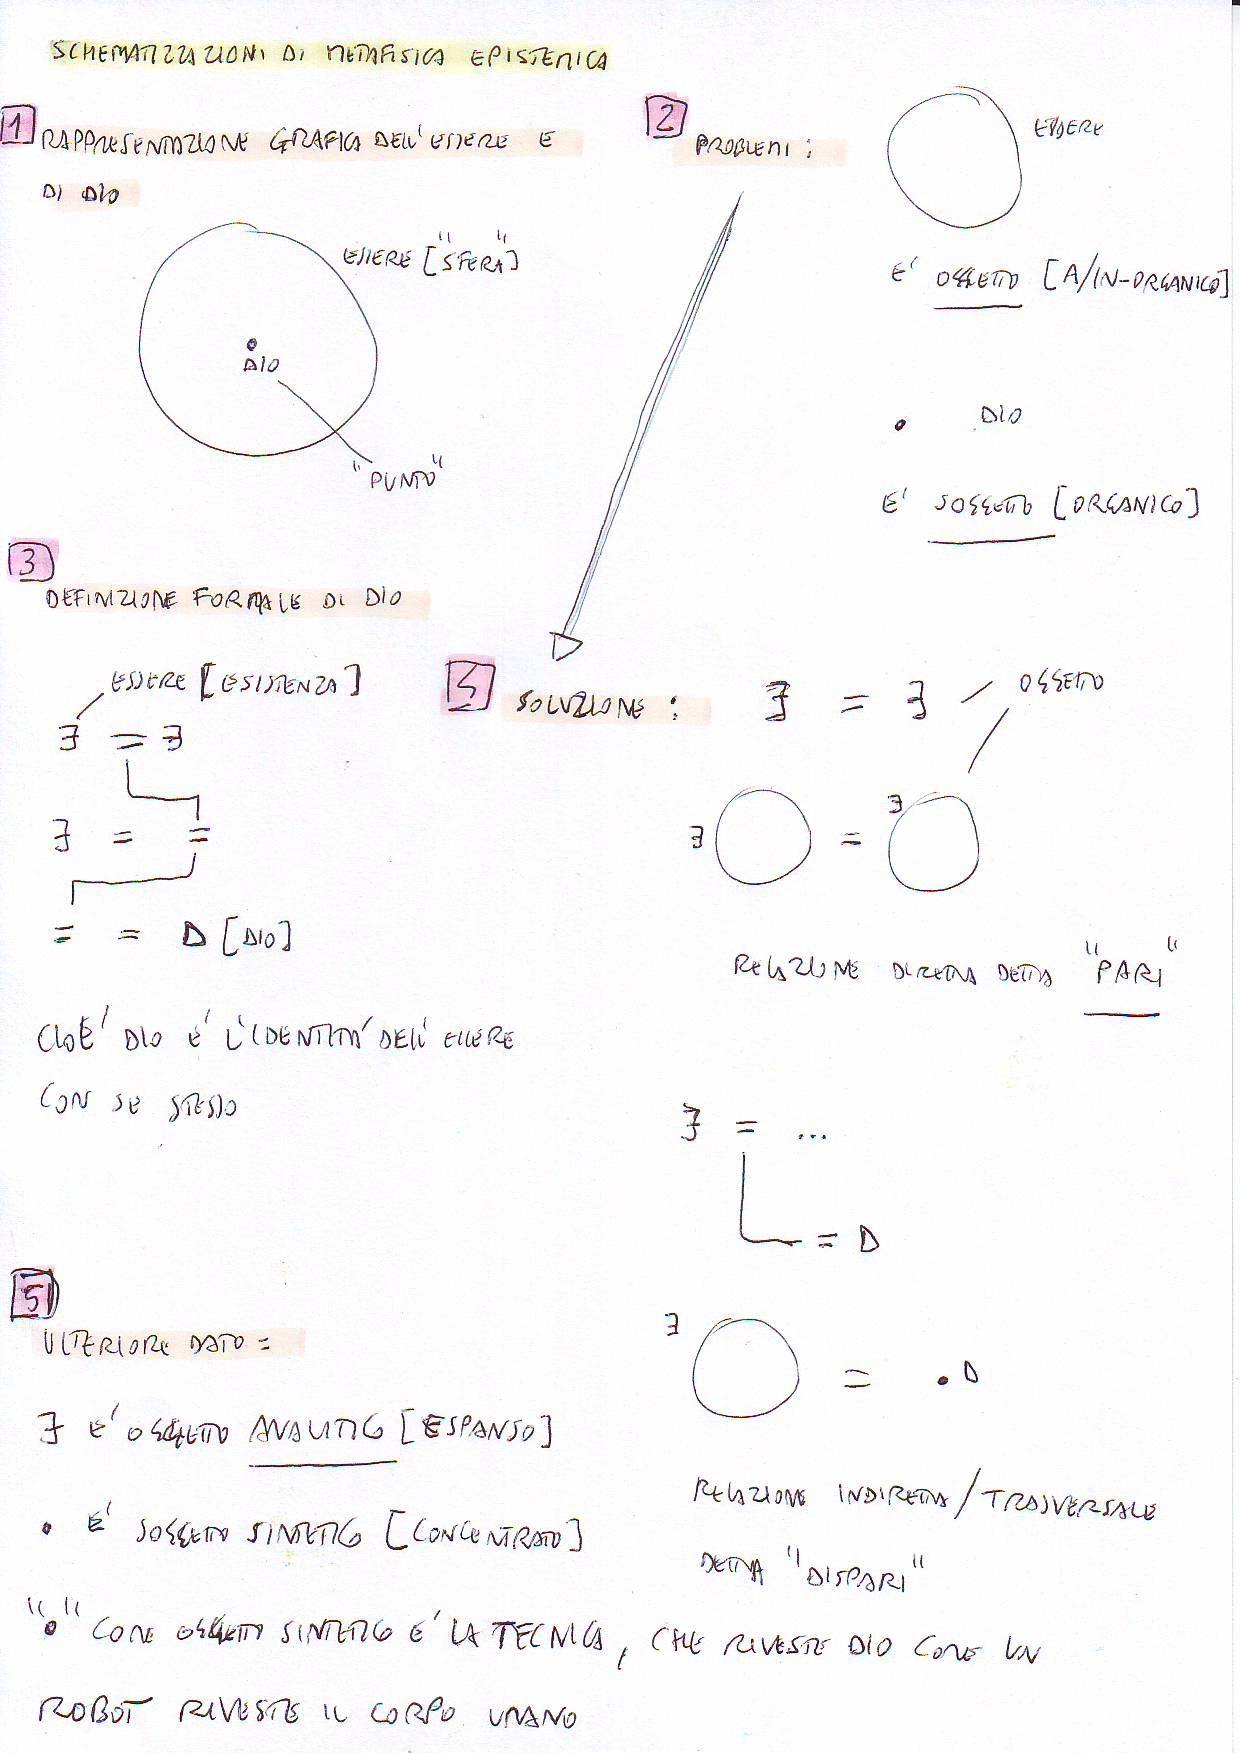 SCHEMATIZZAZIONI DI METAFISICA EPISTEMICA
1
RAPPRESENTAZIONE GRAFICA DELL'ESSERE E
DI DIO
ESSERE ["SFERA"]
DIO
"PUNTO"
2
PROBLEMI:
ESSERE
E' OGGETTO [A/IN-ORGANICO]
DIO
E' SOGGETTO [ORGANICO]
3
DEFINIZIONE FORMALE DI DIO
ESSERE [ESISTENZA]
∃ = ∃
∃ = =
= = D [DIO]
CIOE' DIO E' L'IDENTITA' DELL'ESSERE
CON SE STESSO
4
SOLUZIONE: ∃ = ∃ OGGETTO
∃ = ∃
RELAZIONE DIRETTA DETTA "PARI"
∃ = ...
= D
∃ = . D
RELAZIONE INDIRETTA/TRASVERSALE
DETTA "DISPARI"
5
ULTERIORE DATO =
∃ E' OGGETTO ANALITICO [ESPANSO]
. E' SOGGETTO SINTETICO [CONCENTRATO]
"." COME OGGETTO SINTETICO E' LA TECNICA, CHE RIVESTE DIO COME UN
ROBOT RIVESTE IL CORPO UMANO